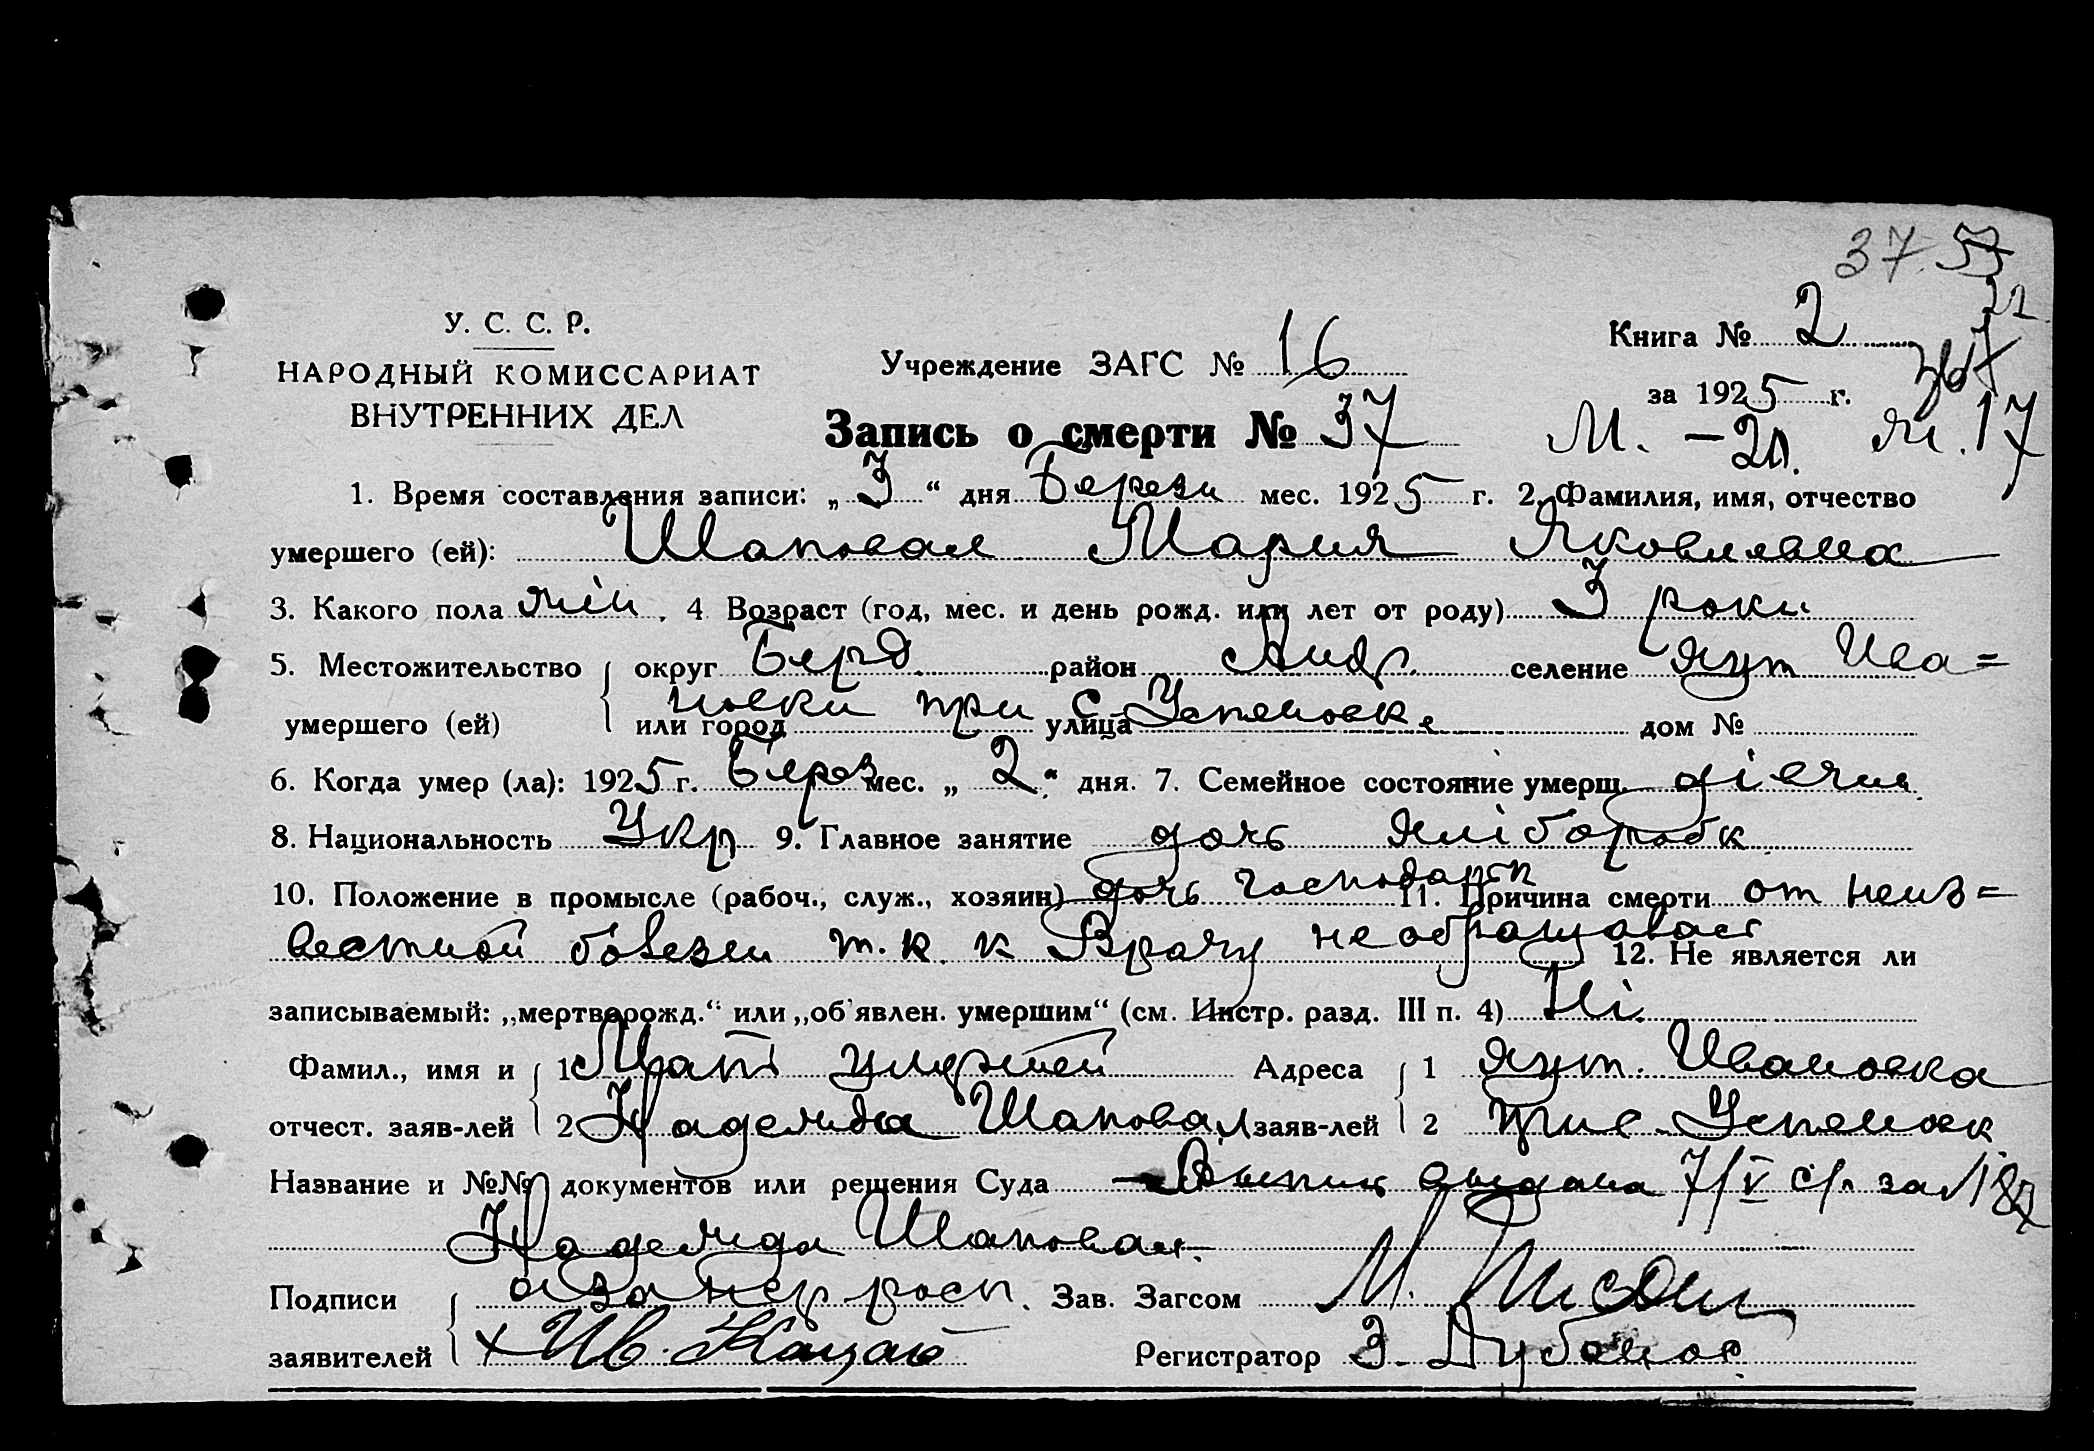 37. 53
22
У. С. С. Р.
НАРОДНЫЙ КОМИССАРИАТ
ВНУТРЕННИХ ДЕЛ
Учреждение ЗАГС № 16
Книга № 2
за 1925 г.
Запись о смерти № 37
М. – 20. Я. 17
1. Время составления записи: „ 3 “ дня Березн мес. 1925 г. 2. Фамилия, имя, отчество
умершего (ей): Шаповал Мария Яковлевна
3. Какого пола жін. 4 Возраст (год, мес. и день рожд. или лет от роду) 3 роки
5. Местожительство округ Берд район Андр. селение хут Ива=
умершего (ей) или город новки при улица с Успеновке дом №
6. Когда умер (ла): 1925 г. Берез мес. „ 2 “ дня. 7. Семейное состояние умерш.
8. Национальность Укр 9. Главное занятие дочь хліборобк
10. Положение в промысле (рабоч., служ., хозяин) дочь господарк 11. Причина смерти от неиз=
вестной болезни т. к. к Врачу не обращалась 12. Не является ли
записываемый: „мертворожд.“ или „об'явлен. умершим“ (см. Инстр. разд. III п. 4) Ні.
Фамил., имя и 1 Мати умершей Адреса 1 хут. Ивановка
отчест. заяв-лей 2 Надежда Шаповал заяв-лей 2 при с. Успеновк
Название и №№ документов или решения Суда – Выпись выдана 7/V с/г за № 187
Надежда Шаповал.
Подписи а за негр росп. Зав. Загсом М.
заявителей х Ив. Кацай Регистратор З.